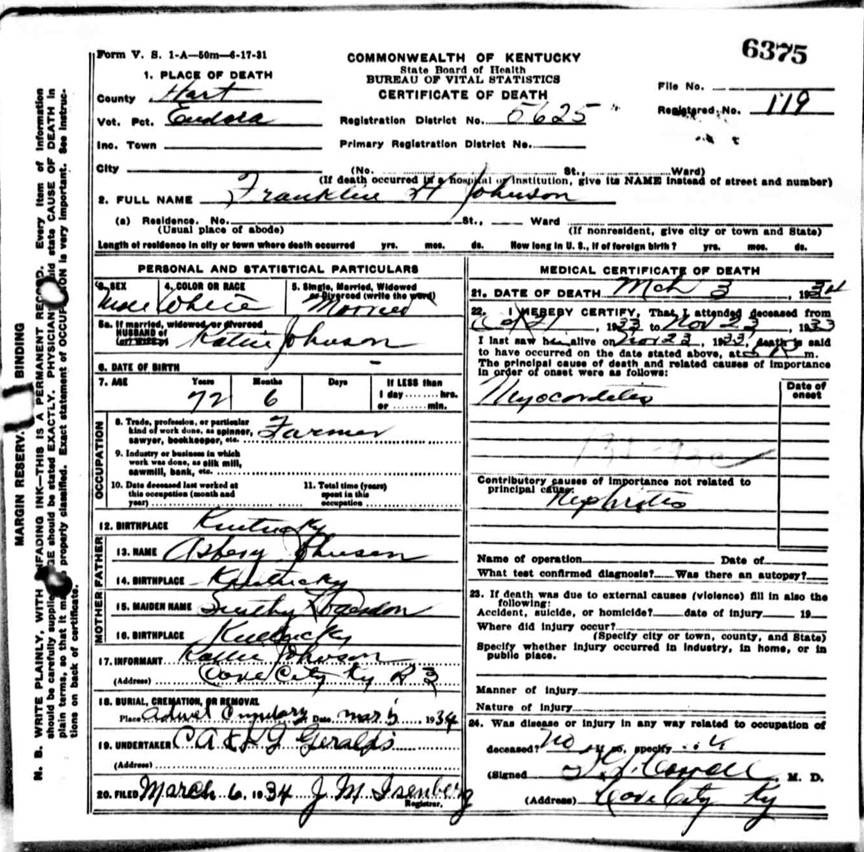 6375
Form V. S. 1-A—50m—6-17-31
COMMONWEALTH OF KENTUCKY
State Board of Health
BUREAU OF VITAL STATISTICS
CERTIFICATE OF DEATH
File No.
Registered No. 119
1. PLACE OF DEATH
County Hart
Vot. Pct. Eudora
Registration District No. 5625
Inc. Town
Primary Registration District No.
City (No. St., Ward)
(If death occurred in a hospital or institution, give its NAME instead of street and number)
2. FULL NAME Franklin H Johnson
(a) Residence. No. St., Ward
(Usual place of abode) (If nonresident, give city or town and State)
Length of residence in city or town where death occurred yrs. mos. ds. How long in U. S., if of foreign birth? yrs. mos. ds.
PERSONAL AND STATISTICAL PARTICULARS
3. SEX 4. COLOR OR RACE 5. Single, Married, Widowed
or Divorced (write the word)
Male White Married
5a. If married, widowed or divorced
HUSBAND of
(or) WIFE of Katie Johnson
6. DATE OF BIRTH
7. AGE Years Months Days If LESS than
1 day........hrs.
or ........min.
72 6
OCCUPATION
8. Trade, profession, or particular
kind of work done, as spinner,
sawyer, bookkeeper, etc. Farmer
9. Industry or business in which
work was done, as silk mill,
sawmill, bank, etc.
10. Date deceased last worked at
this occupation (month and
year)
11. Total time (years)
spent in this
occupation
12. BIRTHPLACE Kentucky
FATHER
13. NAME Asbery Johnson
14. BIRTHPLACE Kentucky
MOTHER
15. MAIDEN NAME
16. BIRTHPLACE Kentucky
17. INFORMANT Katie Johnson
(Address) Cave City Ky R 3
18. BURIAL, CREMATION, OR REMOVAL
Place Date Mar 5 1934
19. UNDERTAKER Geralds
(Address)
20. FILED March 6, 1934 J M Isenberg
Registrar.
MEDICAL CERTIFICATE OF DEATH
21. DATE OF DEATH Mch 3, 1934
22. I HEREBY CERTIFY, That I attended deceased from
Oct 21, 1933 to Nov 23, 1933
I last saw h alive on Nov 23, 1933, death is said
to have occurred on the date stated above, at m.
The principal cause of death and related causes of importance
in order of onset were as follows:
Date of
onset
Myocarditis
Contributory causes of importance not related to
principal cause:
Nephritis
Name of operation Date of
What test confirmed diagnosis? Was there an autopsy?
23. If death was due to external causes (violence) fill in also the
following:
Accident, suicide, or homicide? date of injury 19
Where did injury occur?
(Specify city or town, county, and State)
Specify whether injury occurred in industry, in home, or in
public place.
Manner of injury
Nature of injury
24. Was disease or injury in any way related to occupation of
deceased? No If so, specify
(Signed M. D.
(Address) Cave City Ky
MARGIN RESERV BINDING
N. B. WRITE PLAINLY, WITH UNFADING INK—THIS IS A PERMANENT RECORD. Every item of information
should be carefully supplied. AGE should be stated EXACTLY. PHYSICIANS should state CAUSE OF DEATH in
plain terms, so that it may be properly classified. Exact statement of OCCUPATION is very important. See instruc-
tions on back of certificate.